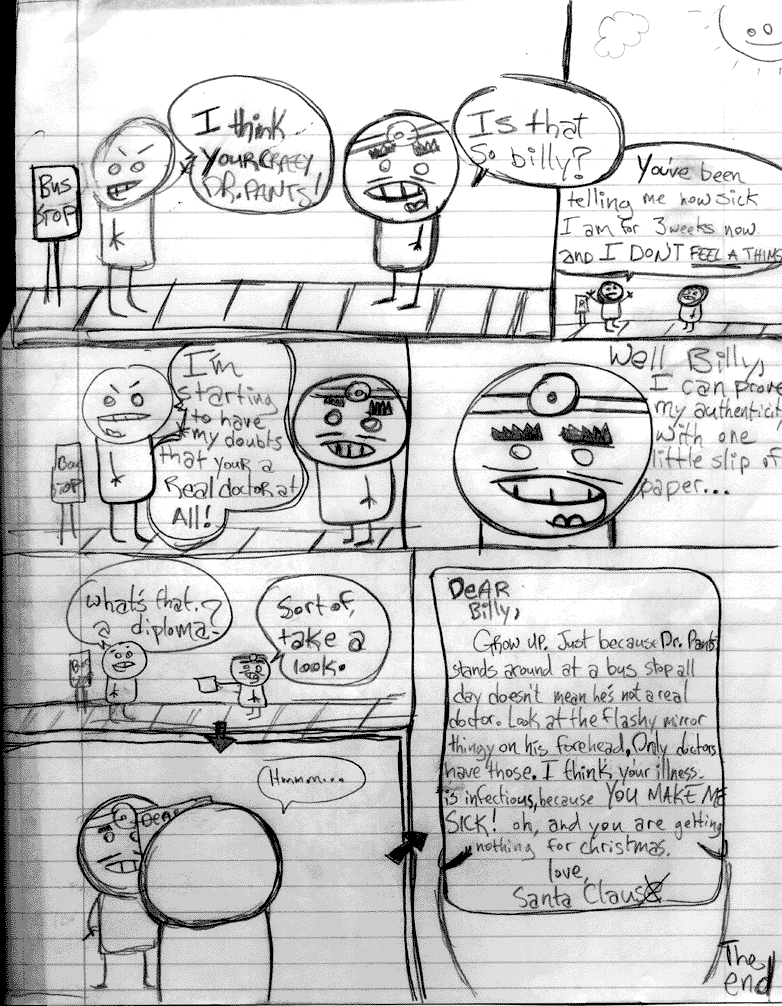 BUS
STOP
I think
YOUR CRAZY
DR. PANTS!
Is that
So billy?
You've been
telling me how sick
I am for 3 weeks now
and I DON'T FEEL A THING
I'm
starting
to have
my doubts
that your a
Real doctor at
All!
Bus
STOP
Well Billy,
I can prove
my authenticit
with one
little slip of
paper...
What's that,
a diploma?
Sort of,
take a
look.
Bus
Hmmm...
DEAR
DEAR
Billy,
Grow up. Just because Dr. Pants
stands around at a bus stop all
day doesn't mean he's not a real
doctor. Look at the flashy mirror
thingy on his forehead, Only doctors
have those. I think your illness
is infectious, because YOU MAKE ME
SICK! oh, and you are getting
nothing for christmas.
love,
Santa Claus
The
end